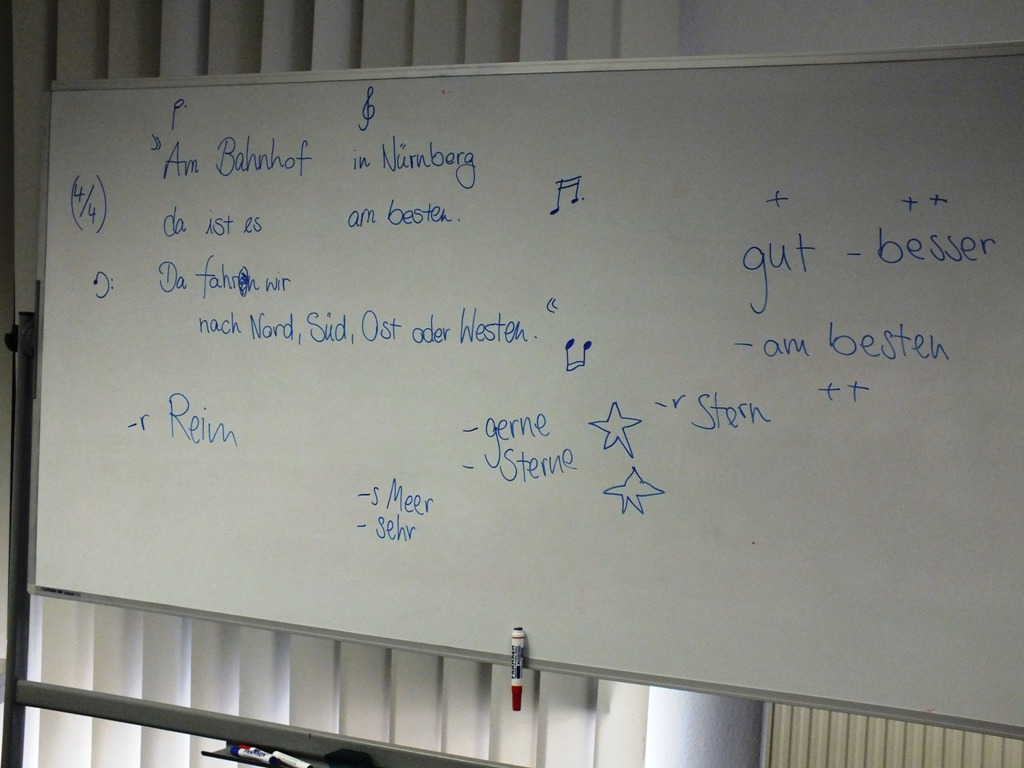 p.
"Am Bahnhof in Nürnberg
(4/4)
da ist es am besten.
Da fahren wir
nach Nord, Süd, Ost oder Westen."
+ ++
gut - besser
- am besten
++
-r Reim
- gerne
- Sterne
-r Stern
-s Meer
- sehr